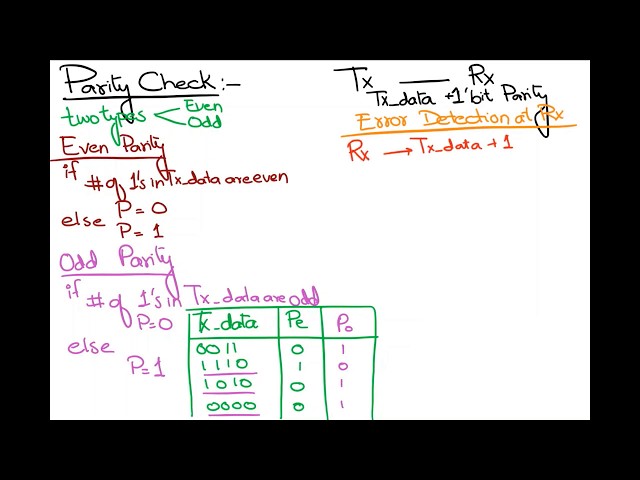 Parity Check:-
two types
Even
Odd
Even Parity
if
# of 1's in Tx_data are even
P = 0
else
P = 1
Odd Parity
if
# of 1's in Tx_data are odd
P = 0
else
P = 1
Tx_data Pe Po
0011 0 1
1110 1 0
1010 0 1
0000 0 1
Tx — Rx
Tx_data + 1'bit Parity
Error Detection at Rx
Rx → Tx_data + 1